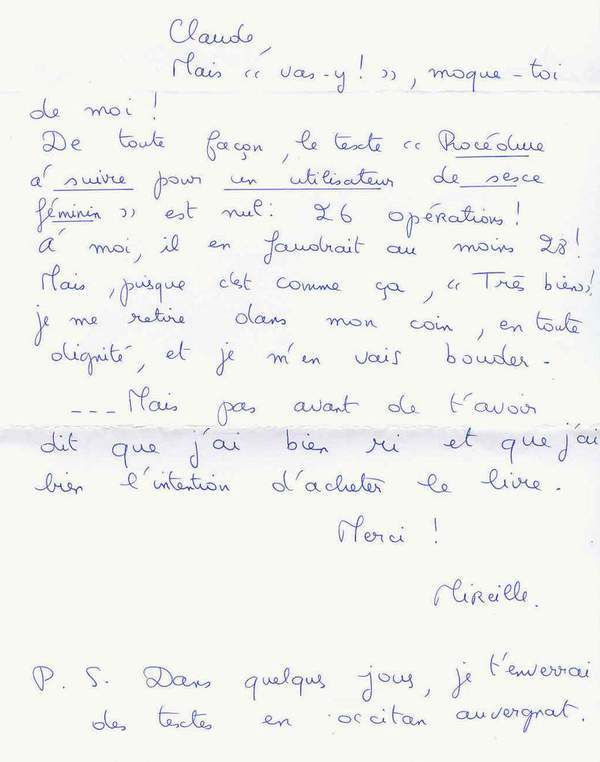 Claude,
Mais « vas-y ! », moque-toi
de moi !
De toute façon, le texte « Procédure
à suivre pour un utilisateur de sexe
féminin » est nul : 26 opérations !
À moi, il en faudrait au moins 28 !
Mais, puisque c'est comme ça, « Très bien » !
je me retire dans mon coin, en toute
dignité, et je m'en vais bouder -
--- Mais pas avant de t'avoir
dit que j'ai bien ri et que j'ai
bien l'intention d'acheter le livre.
Merci !
Mireille.
P. S. Dans quelques jours, je t'enverrai
des textes en occitan auvergnat.